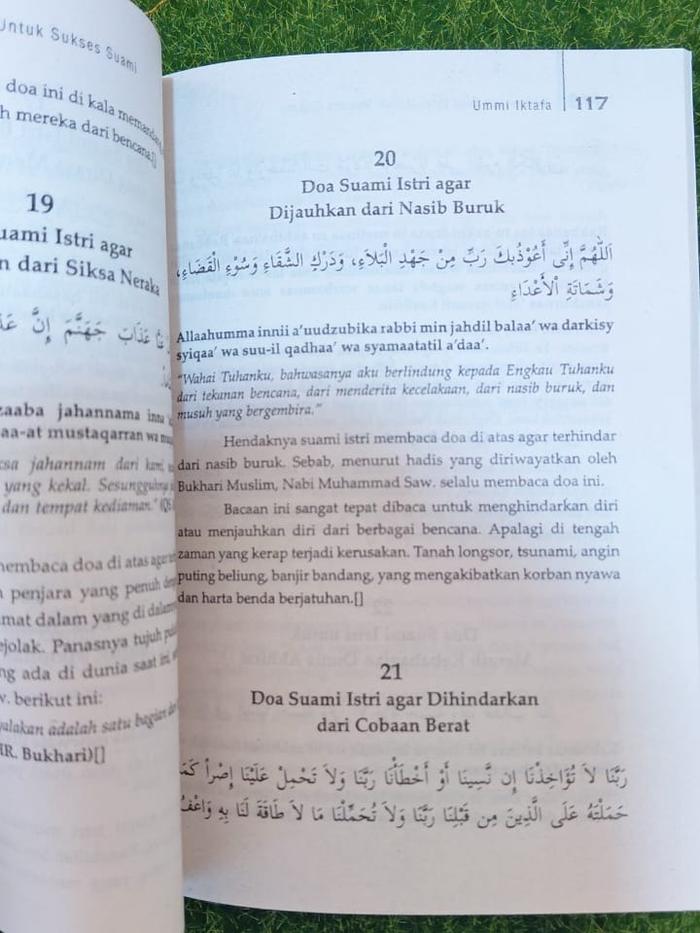 Untuk Sukses Suami
doa ini di kala
mereka dari bencana.[]
19
Suami Istri agar
dari Siksa Neraka
عَذَابَ جَهَنَّمَ إِنَّ
jahannama inna
mustaqarran wa
jahannam dari kami,
yang kekal. Sesungguhnya
dan tempat kediaman."
membaca doa di atas agar
penjara yang penuh
dalam yang di
Panasnya tujuh
ada di dunia saat ini
berikut ini:
adalah satu bagian
(HR. Bukhari)[]
Ummi Iktafa | 117
20
Doa Suami Istri agar
Dijauhkan dari Nasib Buruk
اَللّٰهُمَّ إِنِّى أَعُوْذُبِكَ رَبِّ مِنْ جَهْدِ الْبَلَاءِ، وَدَرْكِ الشَّقَاءِ وَسُوْءِ الْقَضَاءِ،
وَشَمَاتَةِ الْأَعْدَاءِ
Allaahumma innii a'uudzubika rabbi min jahdil balaa' wa darkisy
syiqaa' wa suu-il qadhaa' wa syamaatatil a'daa'.
"Wahai Tuhanku, bahwasanya aku berlindung kepada Engkau Tuhanku
dari tekanan bencana, dari menderita kecelakaan, dari nasib buruk, dan
musuh yang bergembira."
Hendaknya suami istri membaca doa di atas agar terhindar
dari nasib buruk. Sebab, menurut hadis yang diriwayatkan oleh
Bukhari Muslim, Nabi Muhammad Saw. selalu membaca doa ini.
Bacaan ini sangat tepat dibaca untuk menghindarkan diri
atau menjauhkan diri dari berbagai bencana. Apalagi di tengah
zaman yang kerap terjadi kerusakan. Tanah longsor, tsunami, angin
puting beliung, banjir bandang, yang mengakibatkan korban nyawa
dan harta benda berjatuhan.[]
21
Doa Suami Istri agar Dihindarkan
dari Cobaan Berat
رَبَّنَا لَا تُؤَاخِذْنَا إِن نَّسِينَا أَوْ أَخْطَأْنَا رَبَّنَا وَلَا تَحْمِلْ عَلَيْنَا إِصْراً كَمَا
حَمَلْتَهُ عَلَى الَّذِينَ مِن قَبْلِنَا رَبَّنَا وَلَا تُحَمِّلْنَا مَا لَا طَاقَةَ لَنَا بِهِ وَاعْفُ